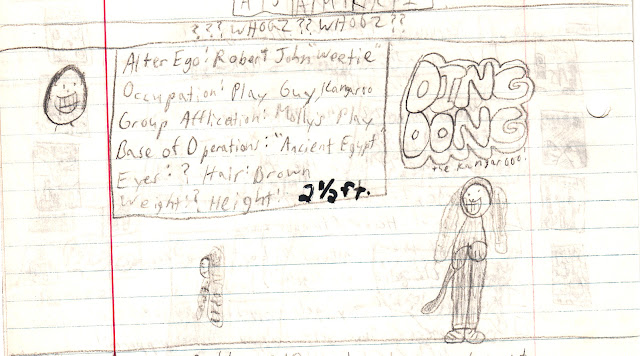 ??? WHOGZ?? WHOGZ??
Alter Ego: Robert John "Weetie"
Occupation: Play Guy, Kangaroo
Group Affilication: Molly's Play
Base of Operations: "Ancient Egypt"
Eyes: ? Hair: Brown
Weight: ? Height: 2 1/2 ft.
DING
DONG
the Kangaroo.